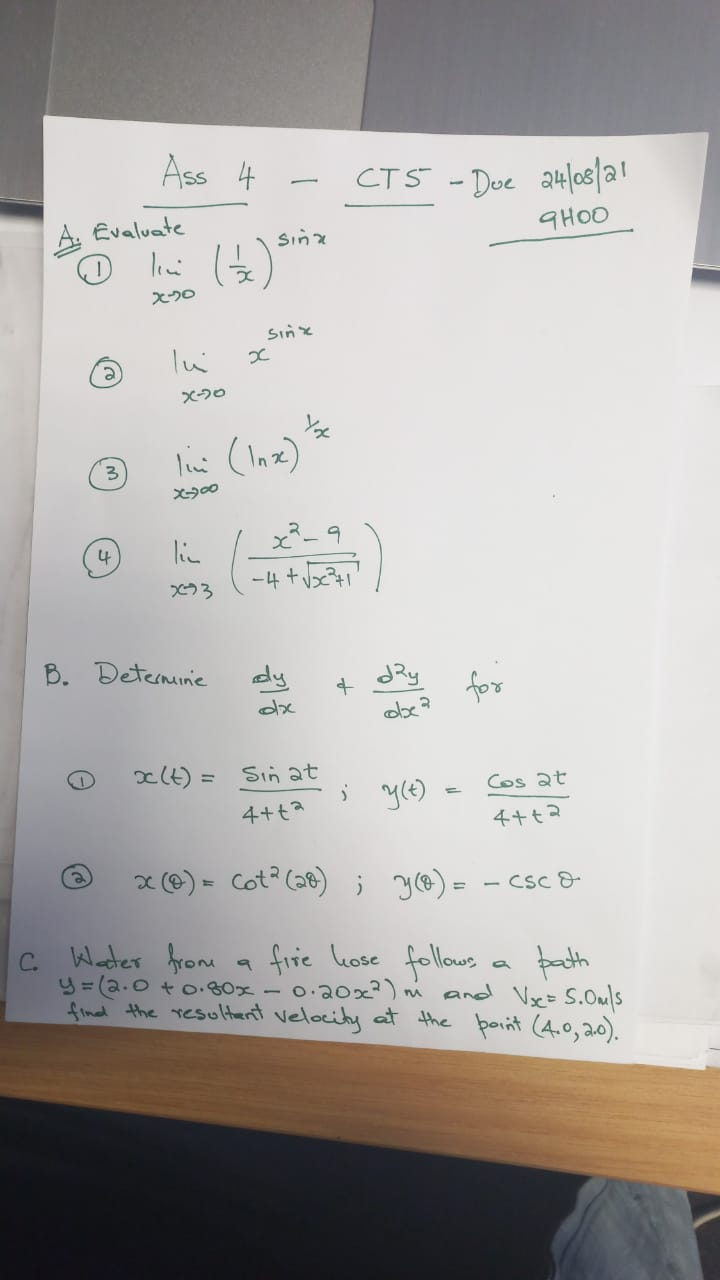 Ass 4 - CTS - Due 24/08/21
9H00
A. Evaluate
① lim x→0 (1/x)^sin x
② lim x→0 x^sin x
③ lim x→∞ (ln x)^1/x
④ lim x→3 (x² - 9 / -4 + √x²+1)
B. Determine dy/dx & d²y/dx² for
① x(t) = Sin 2t / 4+t² ; y(t) = Cos 2t / 4+t²
② x(θ) = Cot²(2θ) ; y(θ) = - csc θ
C. Water from a fire hose follows a path
y = (2.0 + 0.80x - 0.20x²) m and Vx = 5.0m/s
find the resultant velocity at the point (4.0, 2.0).